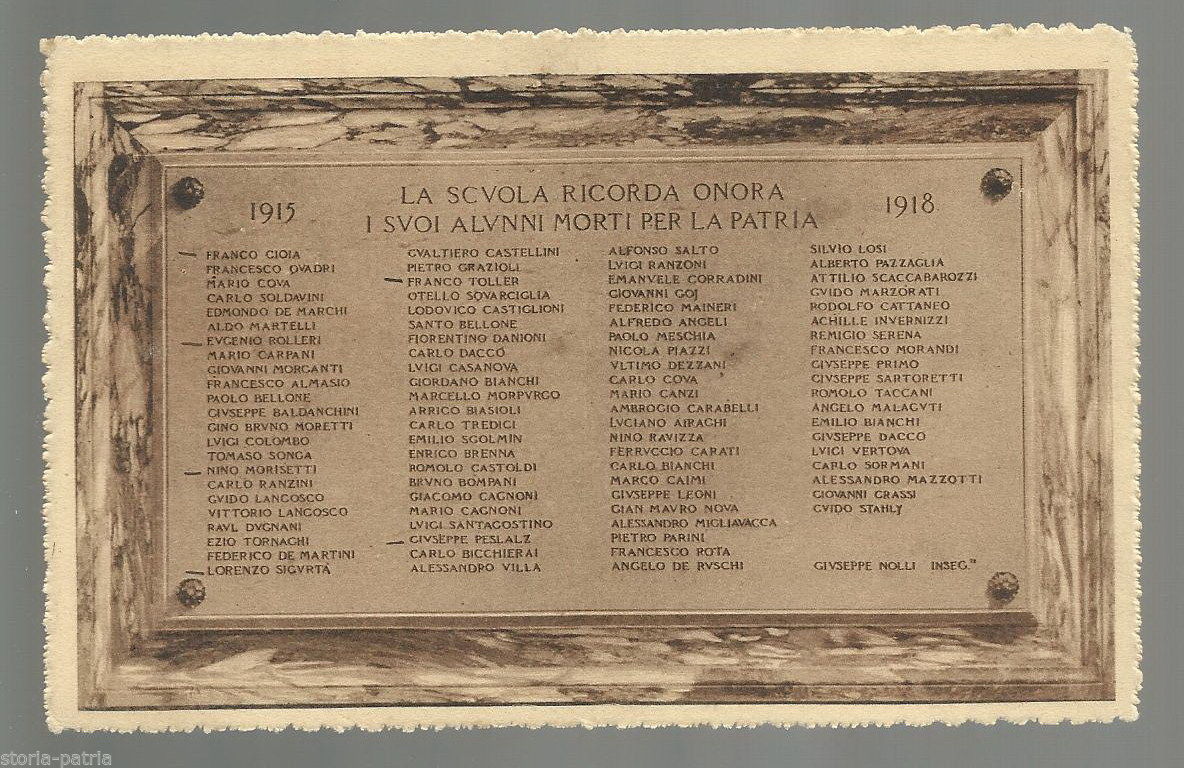 1915
LA SCVOLA RICORDA ONORA
I SVOI ALVNNI MORTI PER LA PATRIA
1918
FRANCO CIOIA
FRANCESCO QVADRI
MARIO COVA
CARLO SOLDAVINI
EDMONDO DE MARCHI
ALDO MARTELLI
EVGENIO ROLLERI
MARIO CARPANI
GIOVANNI MORGANTI
FRANCESCO ALMASIO
PAOLO BELLONE
GIVSEPPE BALDANCHINI
GINO BRVNO MORETTI
LVIGI COLOMBO
TOMASO SONGA
NINO MORISETTI
CARLO RANZINI
GVIDO LANGOSCO
VITTORIO LANGOSCO
RAVL DVGNANI
EZIO TORNAGHI
FEDERICO DE MARTINI
LORENZO SIGVRTÀ
GVALTIERO CASTELLINI
PIETRO GRAZIOLI
FRANCO TOLLER
OTELLO SQVARCIGLIA
LODOVICO CASTIGLIONI
SANTO BELLONE
FIORENTINO DANIONI
CARLO DACCÒ
LVIGI CASANOVA
GIORDANO BIANCHI
MARCELLO MORPVRGO
ARRIGO BIASIOLI
CARLO TREDICI
EMILIO SGOLMIN
ENRICO BRENNA
ROMOLO CASTOLDI
BRVNO BOMPANI
GIACOMO CAGNONI
MARIO CAGNONI
LVIGI SANTAGOSTINO
GIVSEPPE PESLALZ
CARLO BICCHIERAI
ALESSANDRO VILLA
ALFONSO SALTO
LVIGI RANZONI
EMANVELE CORRADINI
GIOVANNI GOJ
FEDERICO MAINERI
ALFREDO ANGELI
PAOLO MESCHIA
NICOLA PIAZZI
VLTIMO DEZZANI
CARLO COVA
MARIO CANZI
AMBROGIO CARABELLI
LVCIANO AIRAGHI
NINO RAVIZZA
FERRVCCIO CARATI
CARLO BIANCHI
MARCO CAIMI
GIVSEPPE LEONI
GIAN MAVRO NOVA
ALESSANDRO MIGLIAVACCA
PIETRO PARINI
FRANCESCO ROTA
ANGELO DE RVSCHI
SILVIO LOSI
ALBERTO PAZZAGLIA
ATTILIO SCACCABAROZZI
GVIDO MARZORATI
RODOLFO CATTANEO
ACHILLE INVERNIZZI
REMIGIO SERENA
FRANCESCO MORANDI
GIVSEPPE PRIMO
GIVSEPPE SARTORETTI
ROMOLO TACCANI
ANGELO MALAGVTI
EMILIO BIANCHI
GIVSEPPE DACCÒ
LVIGI VERTOVA
CARLO SORMANI
ALESSANDRO MAZZOTTI
GIOVANNI GRASSI
GVIDO STAHLY
GIVSEPPE NOLLI INSEG.TE
storia-patria